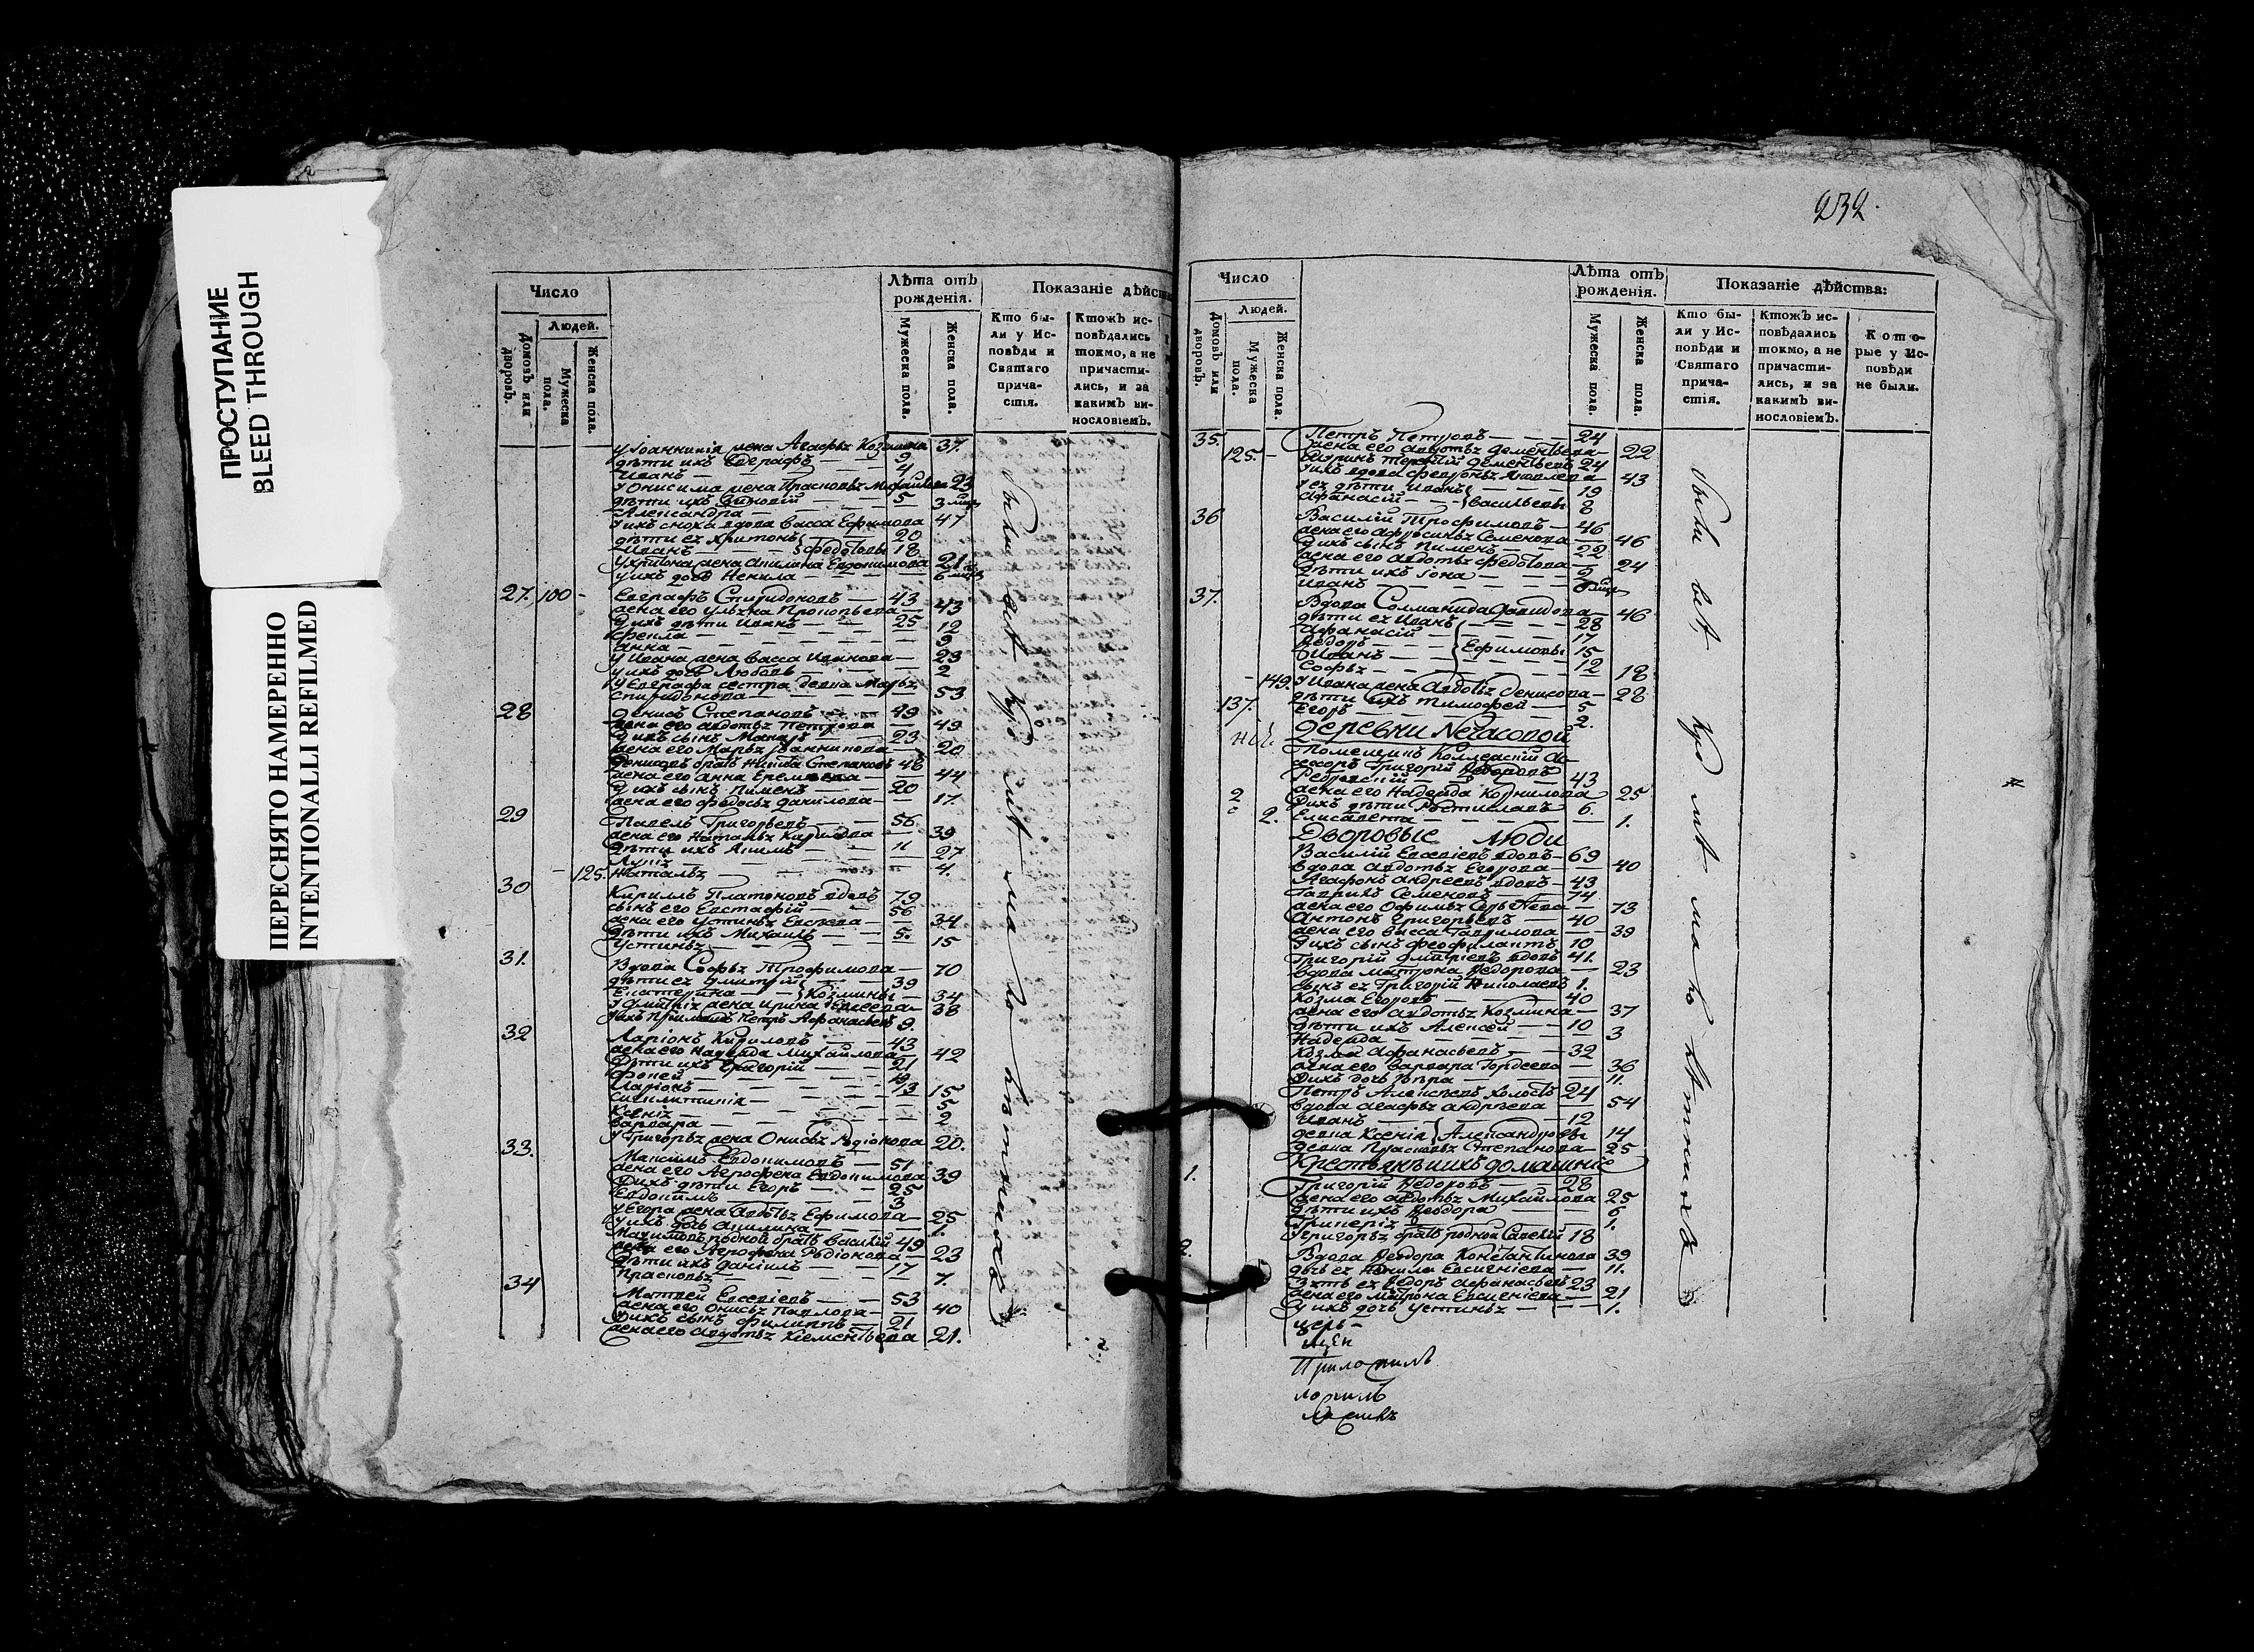 ПРОСТУПАНИЕ
BLEED THROUGH
ПЕРЕСНЯТО НАМЕРЕННО
INTENTIONALLI REFILMED
Число
Лѣта отъ рожденія.
Показаніе дѣйств
Людей.
Домовъ или дворовъ.
Мужеска пола.
Женска пола.
Мужеска пола.
Женска пола.
Кто были у Исповѣди и Святаго причастія.
Ктожъ исповѣдались токмо, а не причастились, и за какимъ винословіемъ.
У Іоанникія жена Агафья Козмина 37.
дѣти ихъ Евграфъ 9
Иванъ 4
У Онисима жена Прасковья Михайлова 23
дѣти ихъ Зиновій 5
Александра 3
У нихъ сноха вдова Васса Ефимова 47
дѣти ея Харитонъ } Федотовы 20
Иванъ 18
У Харитона жена Акилина Евдокимова 21
у ихъ дочь Ненила 6
27. 100 Евграфъ Спиридоновъ 43
жена его Ульяна Прокопьева 43
У ихъ дѣти Иванъ 25
Фекла 12
Анна 9
У Ивана жена Васса Иванова 23
у ихъ дочь Любовь 2
У Евграфа сестра девка Марья Спиридонова 53
28 Денисъ Степановъ 49
жена его Авдотья Петрова 49
У ихъ сынъ Макаръ 23
жена его Марья Іоанникова 20
Денисовъ братъ Никита Степановъ 46
жена его Анна Еремеева 44
У ихъ сынъ Пименъ 20
жена его Федосья Данилова 17.
29 Павелъ Григорьевъ 56
жена его Наталья Карпова 39
дѣти ихъ Акимъ 11
27
125. Наталья 4.
30 Кирилъ Платоновъ вдовъ 79
сынъ его Евстафій 56
жена его Устинья Евсеева 34
дѣти ихъ Михаилъ 5.
Устинья 15
31. Вдова Софья Трофимова 70
дѣти ея Дмитрій } Козмины 39
Екатерина 34
У Дмитрія жена Ирина Евсеева 38
У ихъ приемышъ Петръ Афанасьевъ 9.
32 Ларіонъ Кириловъ 43
жена его Надежда Михайлова 42
Дѣти ихъ Григорій 21
Фокей
Ларіонъ 13
15
Ксенія 5
Варвара 2
У Григорья жена Онисья Родіонова 20.
33. Максимъ Евдокимовъ 51
жена его Агрофена Евдокимова 39
У ихъ дѣти Егоръ 25
Евдокимъ 3
У Егора жена Авдотья Ефимова 25
У ихъ дочь Акилина 1.
Максимовъ родной братъ Василій 49
жена его Агрофена Родіонова 23
Дѣти ихъ Даніилъ 17
Прасковья 7.
34 Матвей Евсевіевъ 53
жена его Онисья Павлова 40
У ихъ сынъ Филиппъ 21
жена его Авдотья Клементьева 21.
были всѣ
232.
Число
Лѣта отъ рожденія.
Показаніе дѣйства:
Людей.
Домовъ или дворовъ.
Мужеска пола.
Женска пола.
Мужеска пола.
Женска пола.
Кто были у Исповѣди и Святаго причастія.
Ктожъ исповѣдались токмо, а не причастились, и за какимъ винословіемъ.
Которые у Исповѣди не были.
35. Петръ Петровъ 24
жена его Авдотья Дементьева 22
125. Терентій Дементьевъ 24
У ихъ вдова Февронья Яковлева 43
У ея дѣти Иванъ } Васильевы 19
Афанасій 8
36 Василій Трофимовъ 46
жена его Афросинья Семенова 46
У ихъ сынъ Пименъ 22
жена его Авдотья Федотова 24
Дѣти ихъ Іона 2
Иванъ
37. Вдова Соломанида Давидова 46
дѣти ея Иванъ 28
Афанасій } Ефимовы 17
Ѳедоръ 15
Иванъ 12
Софья 18
149. У Ивана жена Авдотья Денисова 28
дѣти ихъ Тимофей 5
137. Егоръ 2.
Деревни Нечасовой
Помещикъ Коллежскій Асесоръ Григорій Ѳедоровъ
43
жена его Надежда Корнилова 25
2 У ихъ дѣти Ростиславъ 6.
2. Елисавета 1.
Дворовые люди
Василій Евсевіевъ вдовъ 69
Вдова Авдотья Егорова 40
Агафонъ Андреевъ вдовъ 43
Гаврилъ Семеновъ 74
жена его Офимья Сергеева 73
Антонъ Григорьевъ 40
жена его Васса Гаврилова 39
У ихъ сынъ Феофилактъ 10
Григорій Дмитріевъ вдовъ 41.
Вдова Матрона Ѳедорова 23
сынъ ея Григорій Николаевъ 1.
Козма Егоровъ 40
жена его Авдотья Козмина 37
Дѣти ихъ Алексей 10
Надежда 3
Козма Афанасьевъ 32
жена его Варвара Гордеева 36
У ихъ дочь Вѣра 11.
Петръ Алексѣевъ холостъ 24
Вдова Агафья Андрѣева 54
Иванъ } Александровы 12
девка Ксенія 14
Девка Прасковья Степанова 25
Крестьянъ и ихъ домашніе
1. Григорій Ѳедоровъ 28
жена его Авдотья Михайлова 25
дѣти ихъ Ѳеодора 6
Гликерія 1.
У Григорья братъ родной Савелій 18
2. Вдова Ѳеодора Константинова 39
дочь ея Ненила Евсигніева 11.
Зять ея Ѳедоръ Афанасьевъ 23
жена его Матрона Евсигніева 21
У ихъ дочь Устинья 1.
были всѣ
Приложилъ